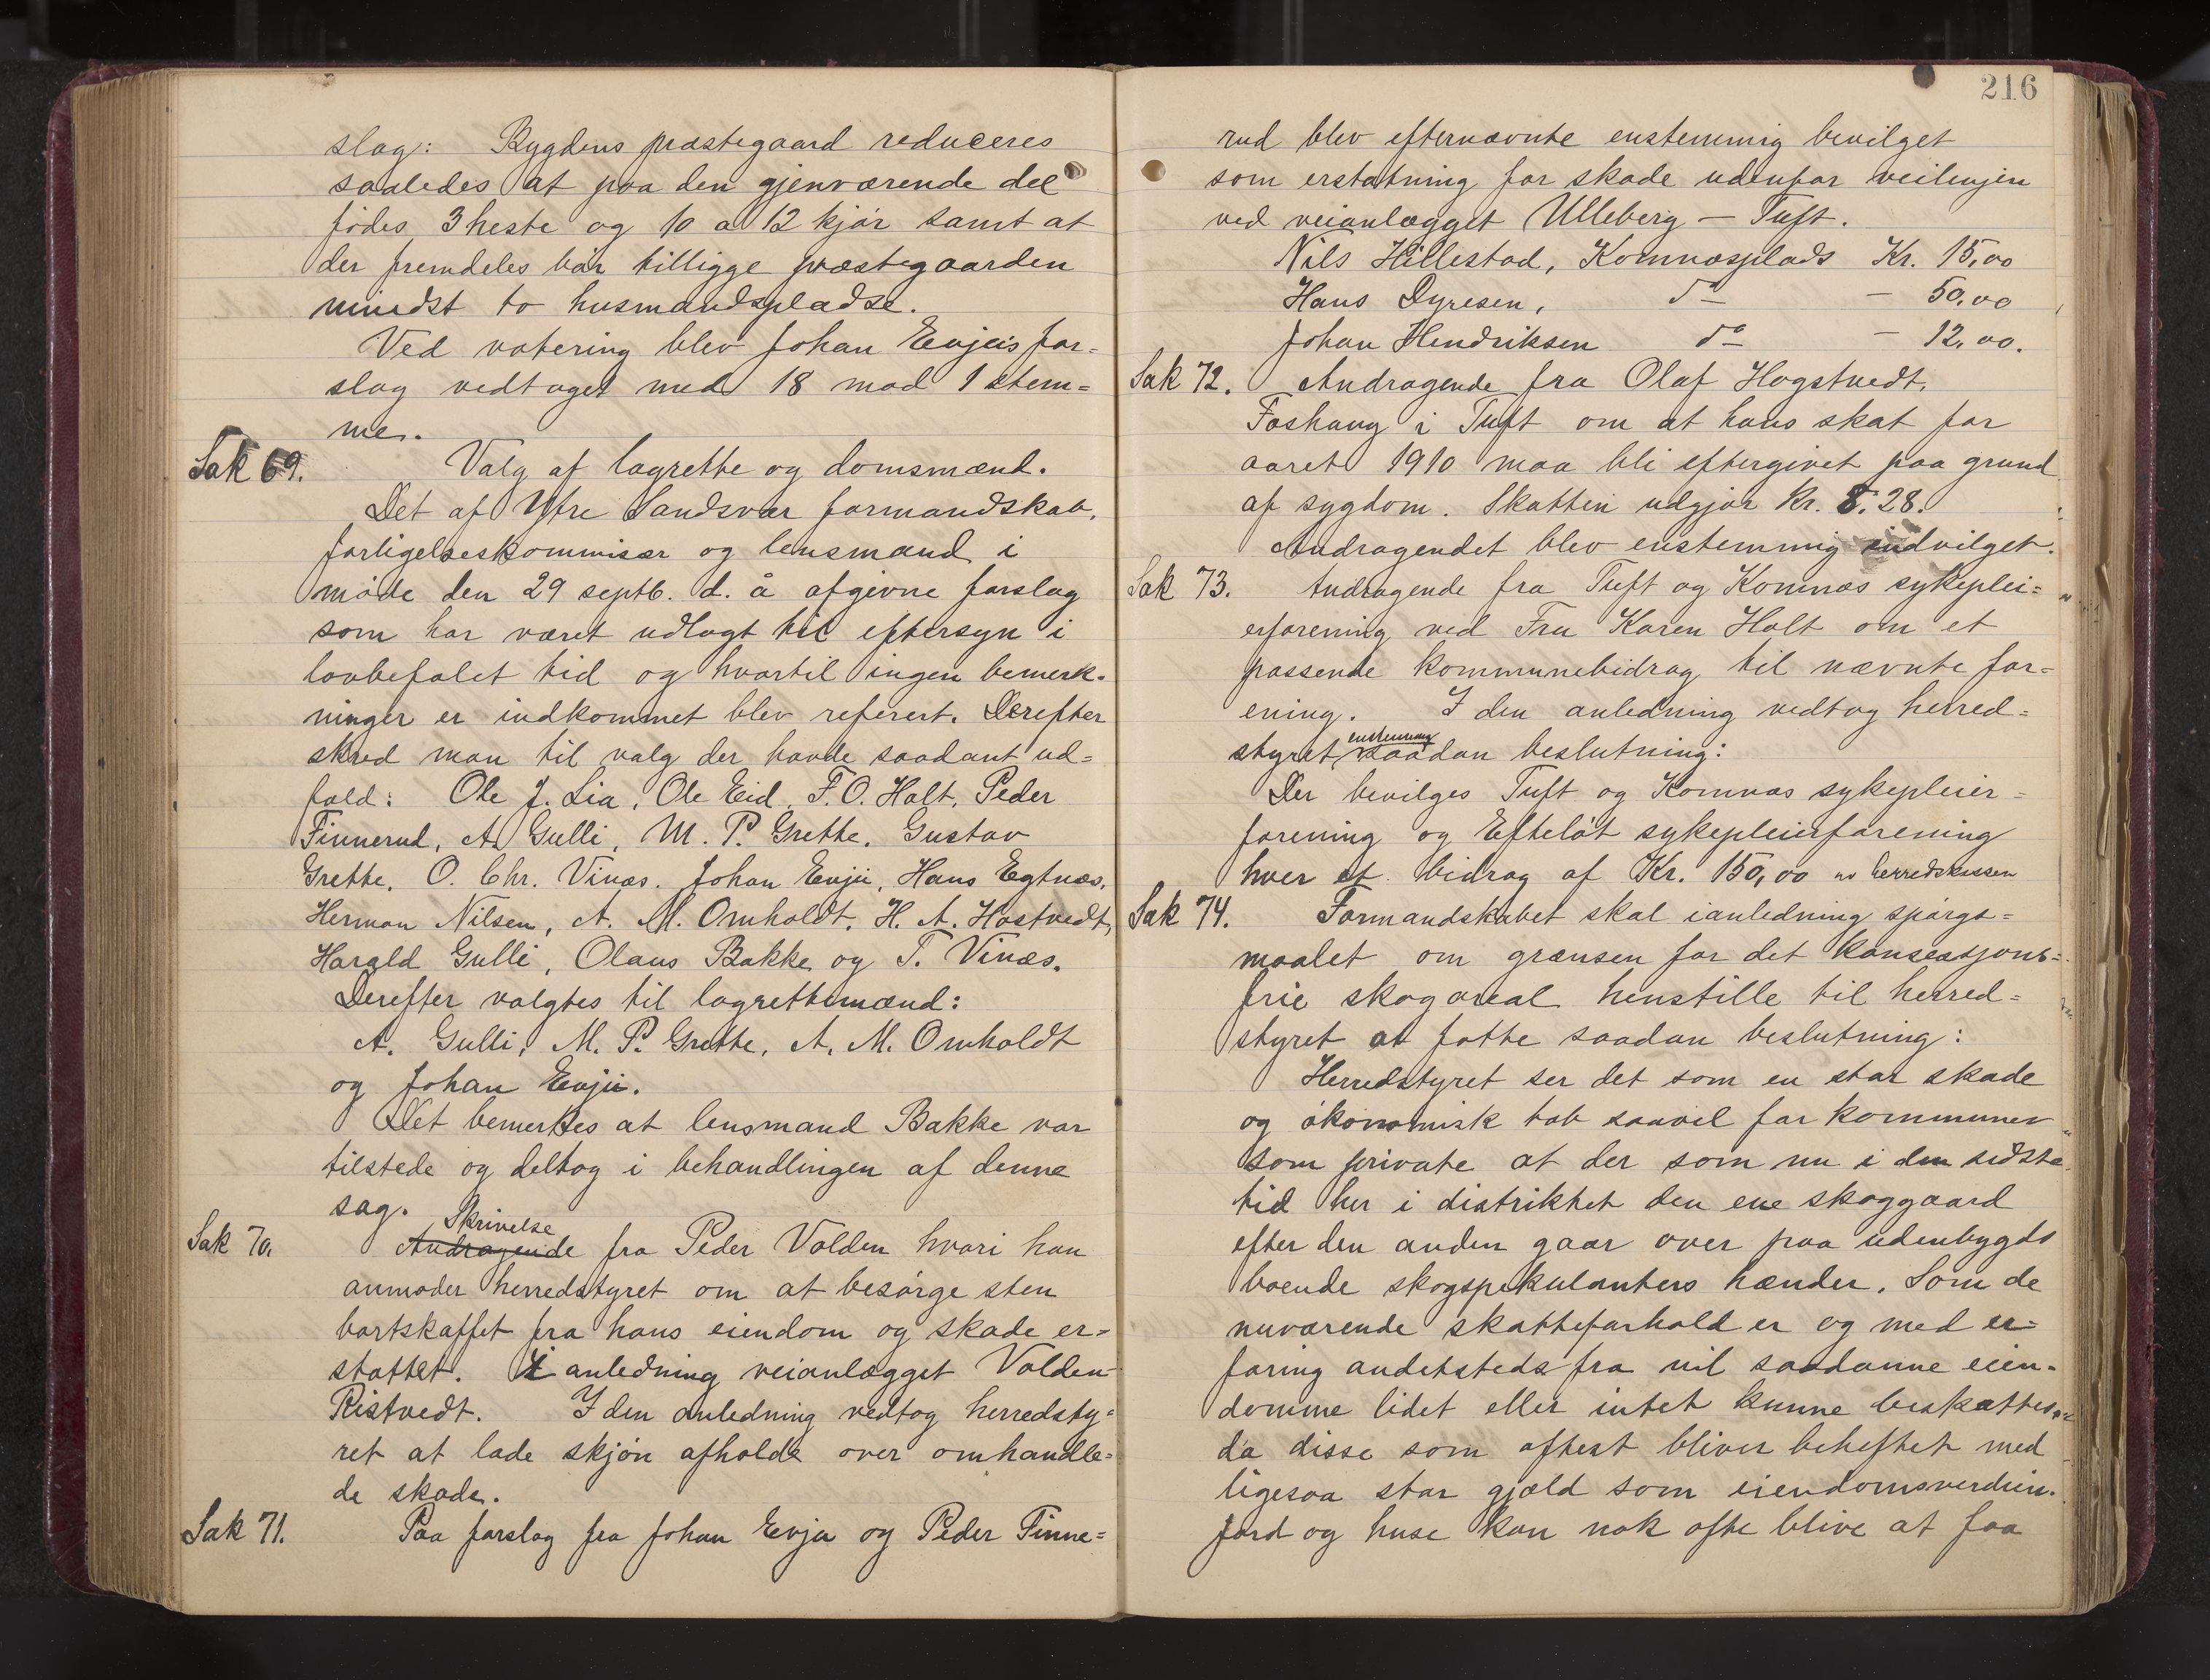 slag: Bygdens præstegaard reduceres
saaledes at paa den gjenværende del
födes 3 heste og 10 a 12 kjör samt at
der fremdeles bör tilligge præstegaarden
mindst to husmandspladse.
Ved votering blev Johan Evjeis for=
slag vedtaget med 18 mod 1 stem=
me.
Sak 69. Valg af lagrette og domsmænd.
Det af Ytre Sandsvær formandskab,
forligelseskommisær og lensmand i
möde den 29 septb. d. å afgivne forslag
som har været udlagt til eftersyn i
lovbefalet tid og hvortil ingen bemerk-
ninger er indkommet blev referert. Derefter
skred man til valg der havde saadant ud=
fald: Ole J. Lia, Ole Eid, F. O. Holt, Peder
Finnerud, A. Gulli, M. P. Grette, Gustav
Grette, O. Chr. Vinæs. Johan Evju, Hans Egtnæs,
Herman Nilsen, A. M. Omholdt, H. A. Hostvedt,
Harald Gulli, Olaus Bakke og T. Vinæs.
Derefter valgtes til lagrettemænd:
A. Gulli, M. P. Grette, A. M. Omholdt
og Johan Evju.
Det bemerkes at lensmand Bakke var
tilstede og deltog i behandlingen af denne
sag.
Skrivelse
Sak 70. Andragende fra Peder Volden hvori han
anmoder herredstyret om at besörge sten
bortskaffet fra hans eiendom og skade er=
stattet. I anledning veianlægget Volden-
Ristvedt. I den anledning vedtog herredsty=
ret at lade skjön afholde over omhandle=
de skade.
Sak 71. Paa forslag fra Johan Evju og Peder Finne=
216
rud blev efternævnte enstemmig bevilget
som erstatning for skade udenfor veilinjen
ved veianlægget Ulleberg – Tuft.
Nils Hillestad, Komnæsplads Kr. 15,00
Hans Dyresen, do – 50,00
Johan Hendriksen do – 12,00.
Sak 72. Andragende fra Olaf Hogstvedt,
Foshaug i Tuft om at hans skat for
aaret 1910 maa bli eftergivet paa grund
af sygdom. Skatten udgjör Kr. 8,28.
Andragendet blev enstemmig indvilget.
Sak 73. Andragende fra Tuft og Komnæs sykeplei=
erforening ved Fru Karen Holt om et
passende kommunebidrag til nævnte for=
ening. I den anledning vedtog herred=
enstemmig
styret saadan beslutning:
Der bevilges Tuft og Komnæs sykepleier=
forening og Efteløt sykepleierforening
hver et bidrag af Kr. 150,00 av herredskassen
Sak 74. Formandskabet skal ianledning spörgs=
maalet om grænsen for det konsessjons=
frie skogareal henstille til herred=
styret at fatte saadan beslutning:
Herredstyret ser det som en stor skade
og ökonomisk tab saavel for kommunen
som private at der som nu i den sidste
tid her i distriktet den ene skoggaard
efter den anden gaar over paa udenbygds
boende skogspekulanters hænder. Som de
nuværende skatteforhold er og med er=
faring andetsteds fra vil saadanne eien-
domme lidet eller intet kunne beskattes
da disse som oftest bliver beheftet med
ligesaa stor gjæld som eiendomsverdien.
Jord og huse kan nok ofte blive at faa